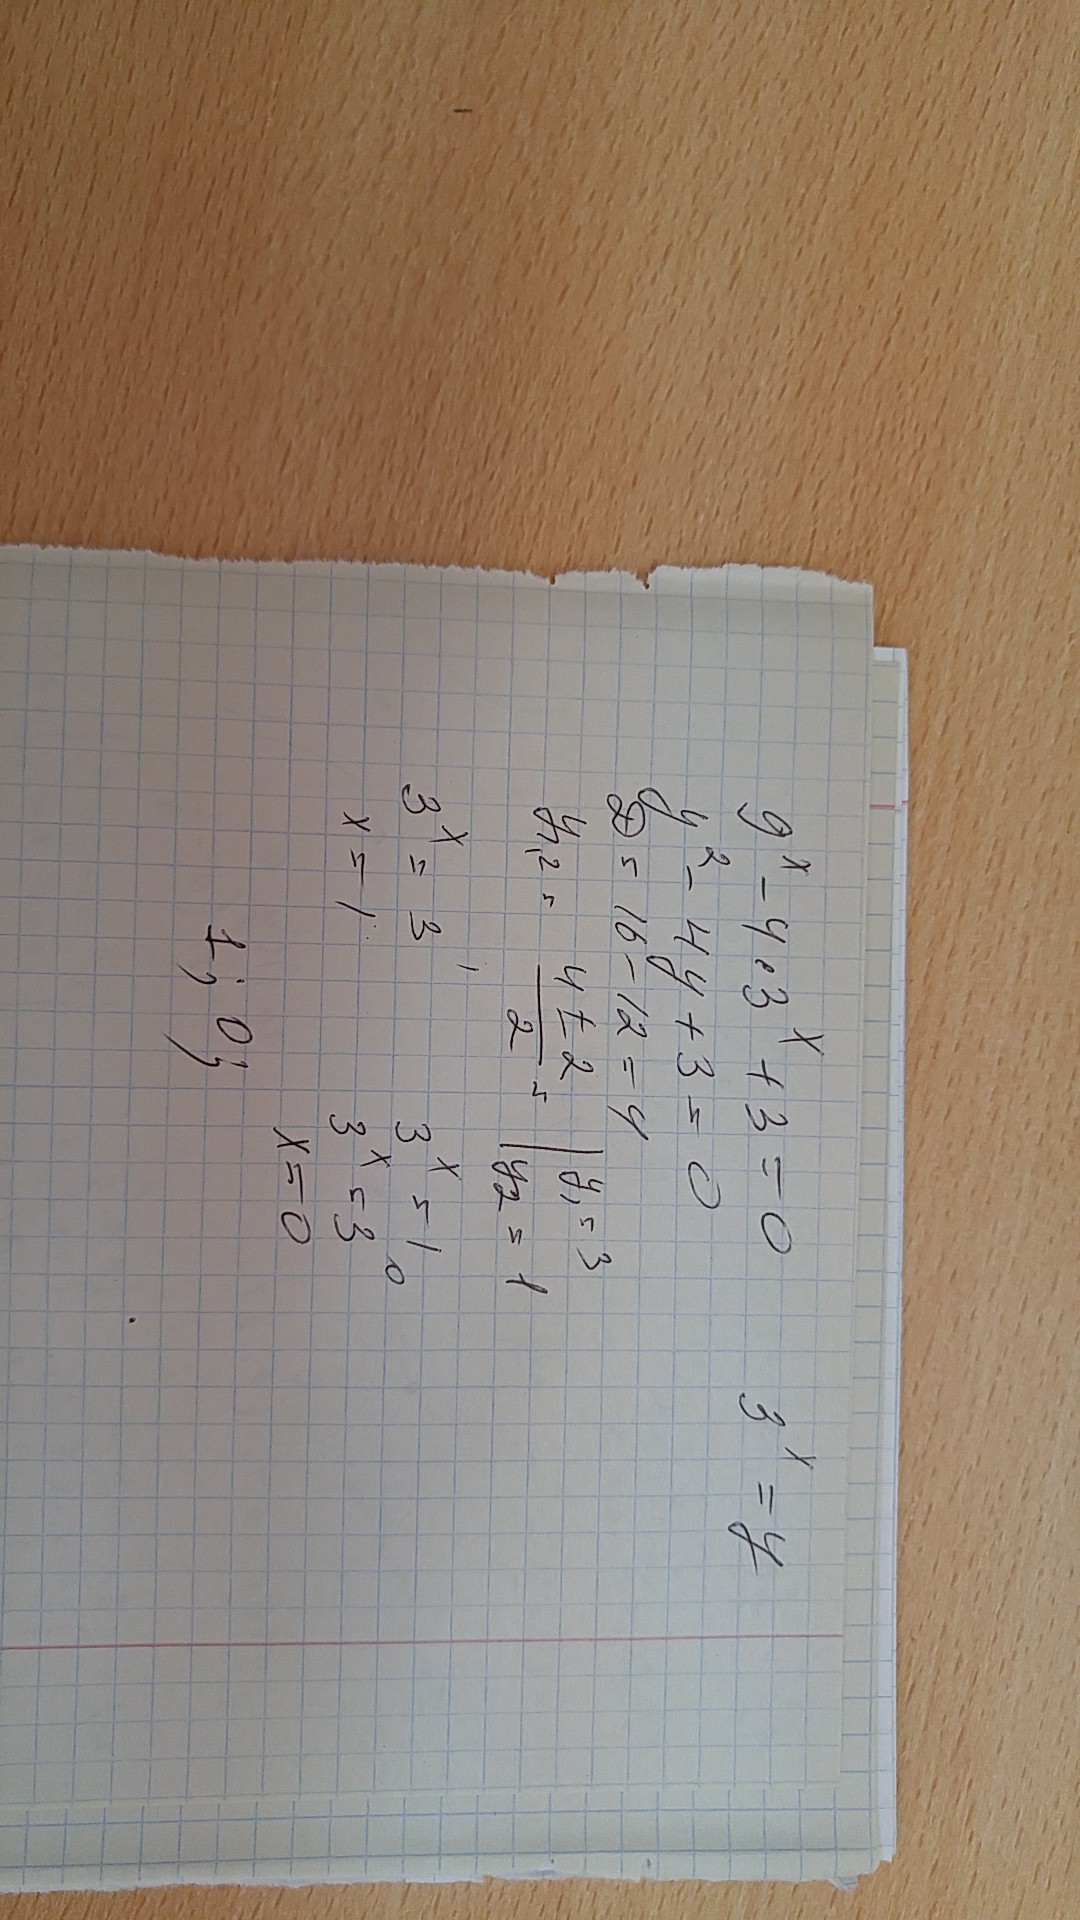 9^x - 4·3^x + 3 = 0    3^x = y
y^2 - 4y + 3 = 0
D = 16 - 12 = 4
y1,2 = (4 ± 2)/2 = | y1 = 3
| y2 = 1
3^x = 3^1    3^x = 1
x = 1    3^x = 3^0
x = 0
1; 0;